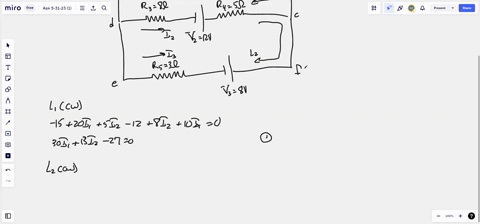 miro
Ask 5-31-23 (1)
Present
Share
R₃=8Ω
R₄=5Ω
d
c
I₂
V₂=12V
I₃
L₂
R₅=3Ω
e
f
V₃=8V
L₁ (CW)
-15 + 20I₁ + 5I₂ - 12 + 8I₂ + 10I₁ = 0
30I₁ + 13I₂ - 27 = 0
L₂ (CW)